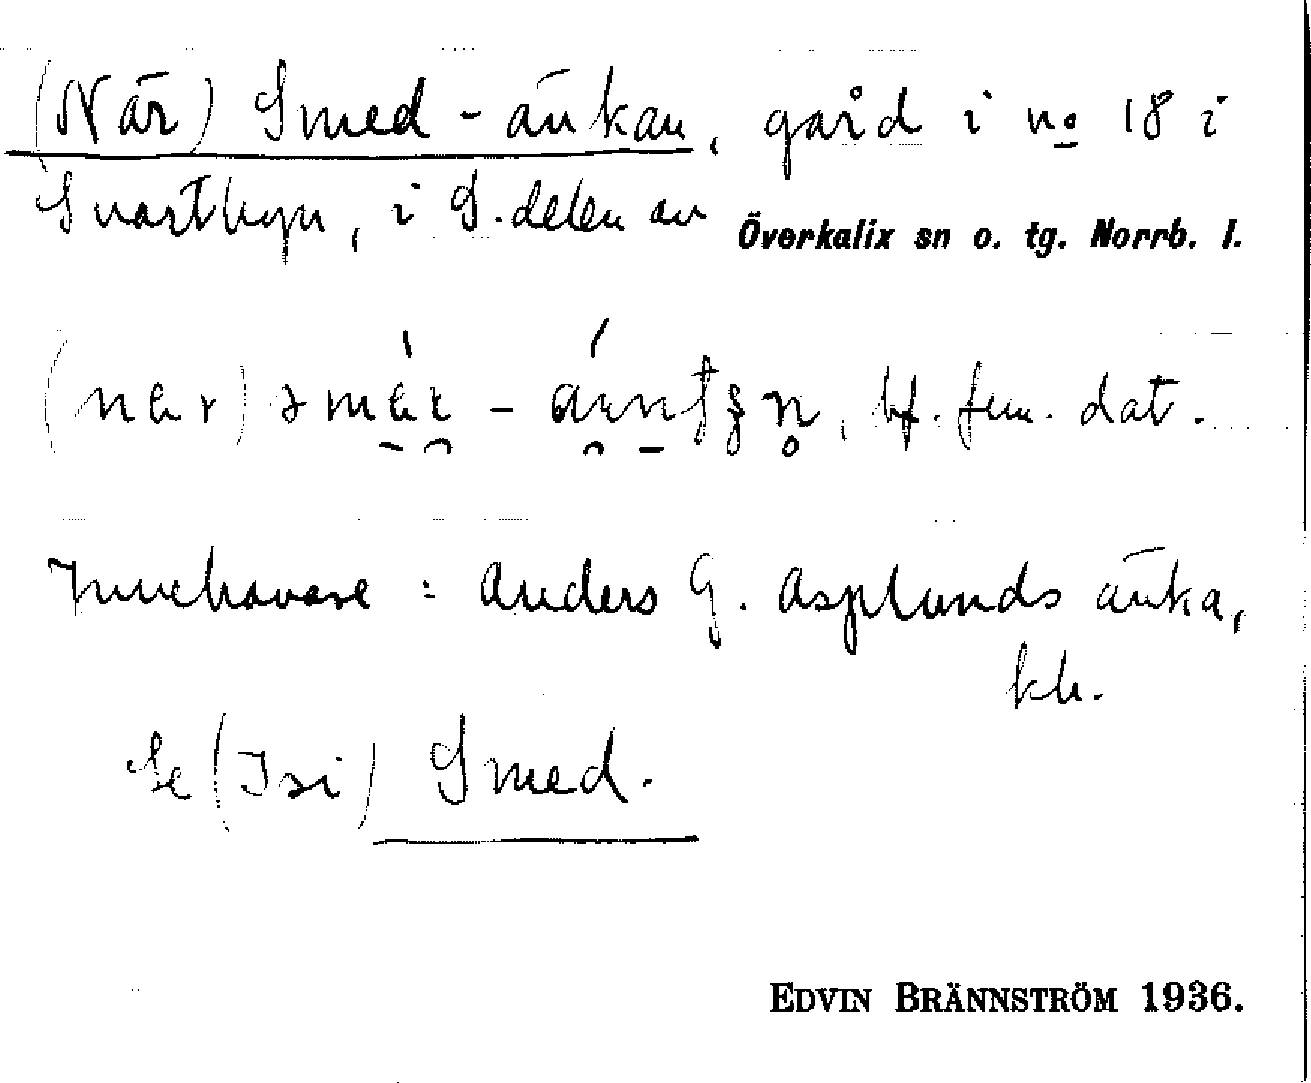 (När) Smed-änkan, gård i no 18 i
Svartbyn, i S. delen av Överkalix sn o. tg. Norrb. l.
bf. fem. dat.
Innehavare: Anders G. Asplunds änka,
kh.
Se (Isi) Smed.
EDVIN BRÄNNSTRÖM 1936.